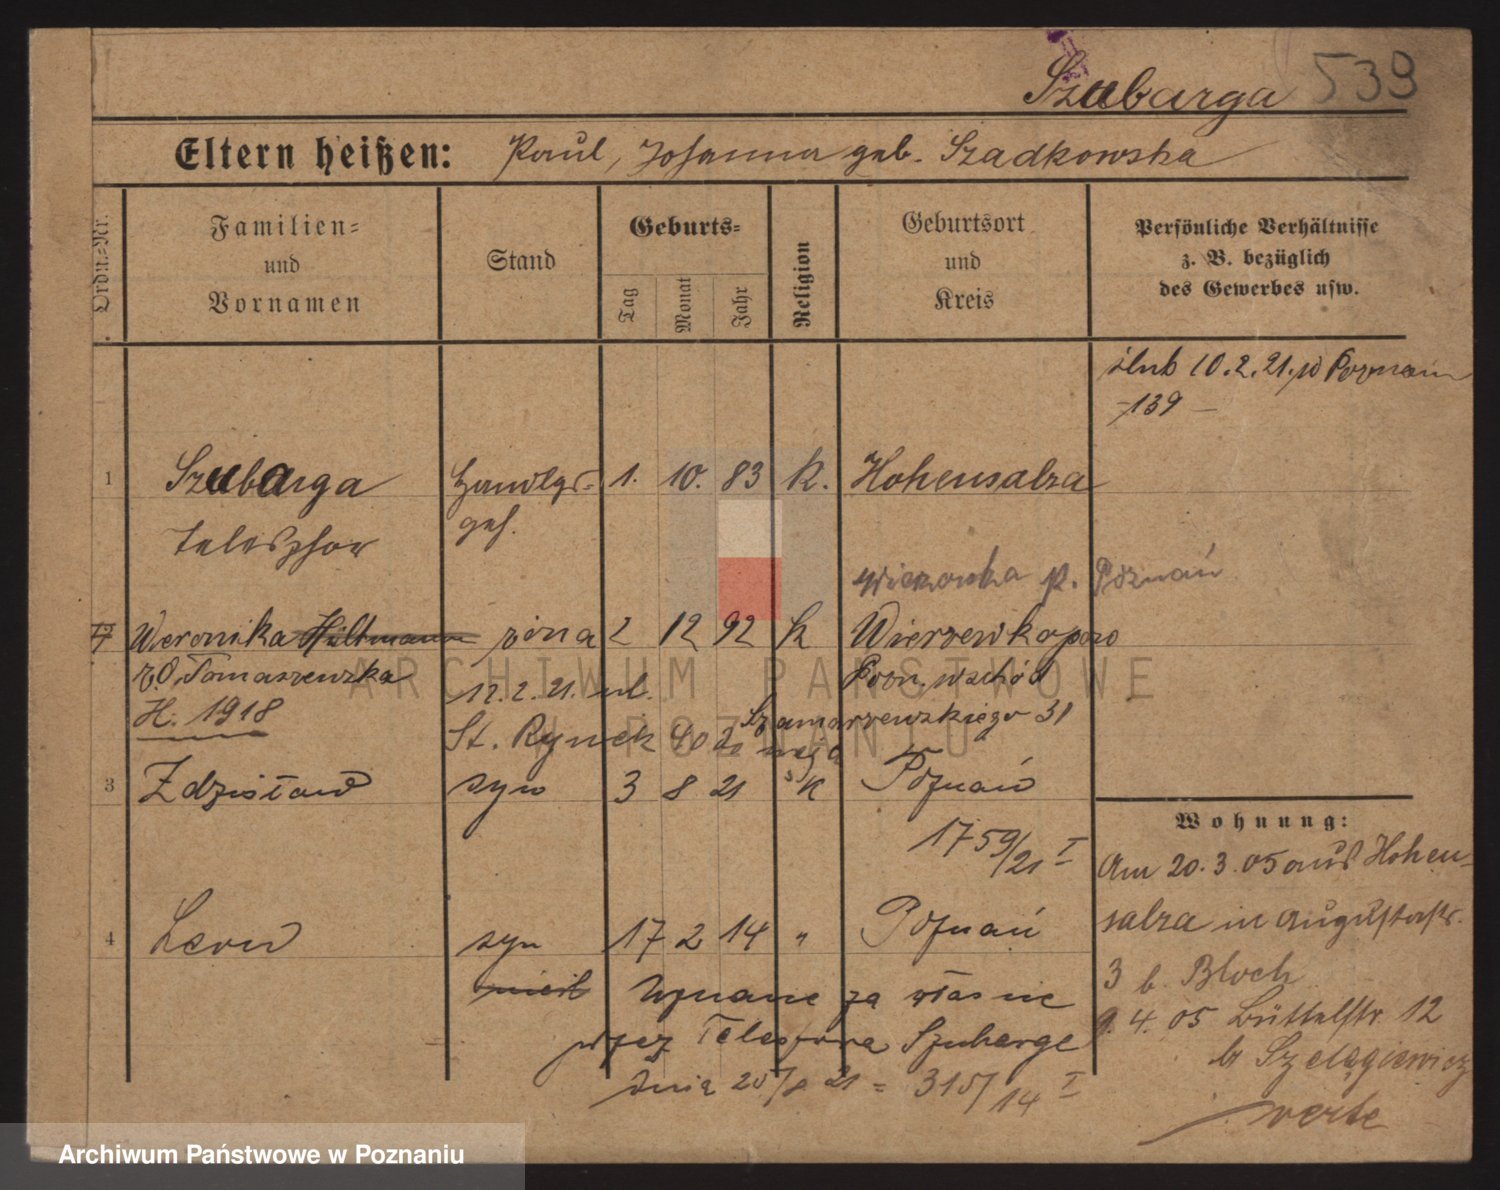 Szubarga 539
Eltern heißen: Paul, Johanna geb. Szadkowska
Ordn.-Nr.
Familien-
und
Vornamen
Stand
Geburts-
Tag
Monat
Jahr
Religion
Geburtsort
und
Kreis
Persönliche Verhältnisse
z. B. bezüglich
des Gewerbes usw.
ślub 10.2.21. w Poznaniu
-139-
1 Szubarga Handlgs- 1. 10. 83 k. Hohensalza
Telesphor geh.
p. Poznań
Weronika Hültmann żona 2 12 92 k
z d. Tomaszewska 12.2.21. ul. Pozn. wschód
H. 1918
St. Rynek Szamarzewskiego 31
3 Zdzisław syn 3 8 21 k Poznań
1759/21 I
4 Leon syn 17 2 14 " Poznań
uznane za własne
przez Telesfora Szubargę
dnia 20/8 21 = 315/14 I
Wohnung:
Am 20.3.05 aus Hohen-
salza in Augustastr.
3 b. Bloch
9.4.05 Büttelstr. 12
b Szelągiewicz
verte
ARCHIWUM PAŃSTWOWE
W POZNANIU
Archiwum Państwowe w Poznaniu